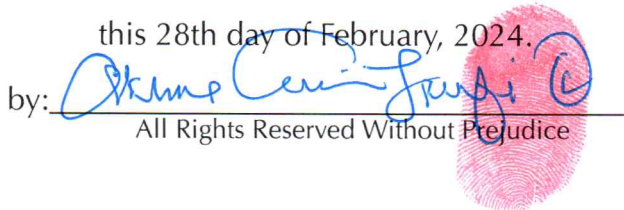 this 28th day of February, 2024.
by: ©
All Rights Reserved Without Prejudice